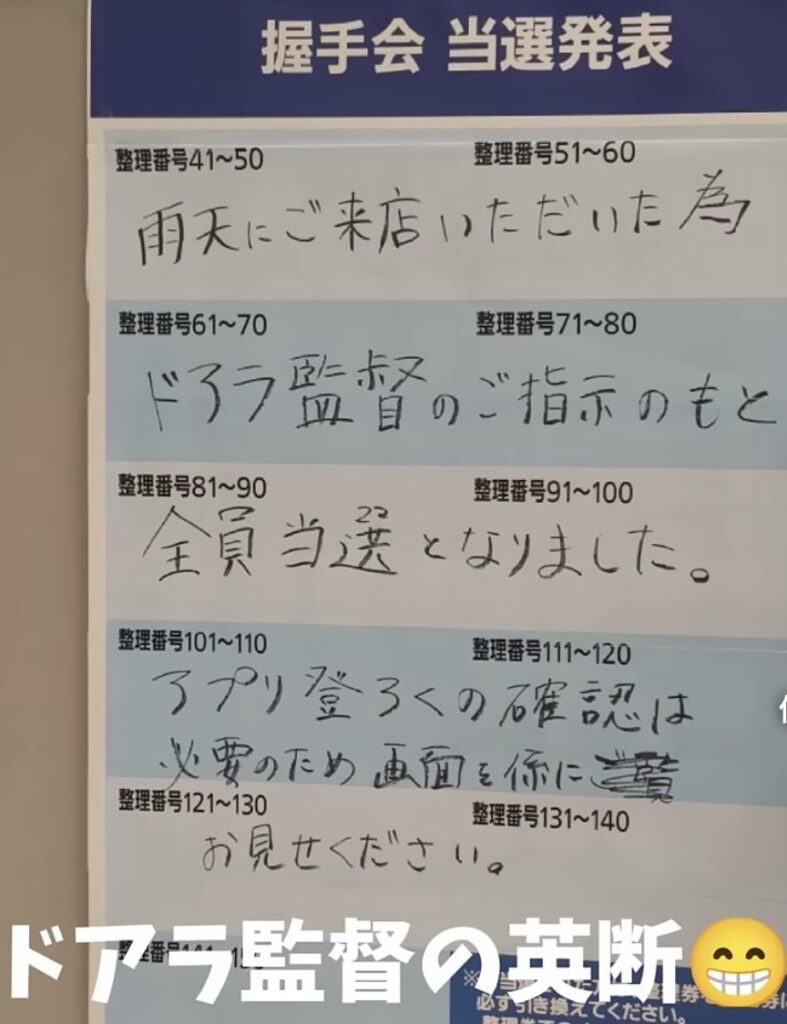 握手会 当選発表
整理番号41～50 整理番号51～60
雨天にご来店いただいた為
整理番号61～70 整理番号71～80
ドアラ監督のご指示のもと
整理番号81～90 整理番号91～100
全員当選となりました。
整理番号101～110 整理番号111～120
アプリ登ろくの確認は
必要のため画面を係に
整理番号121～130 整理番号131～140
お見せください。
ドアラ監督の英断😁
必ず引き換えてください。